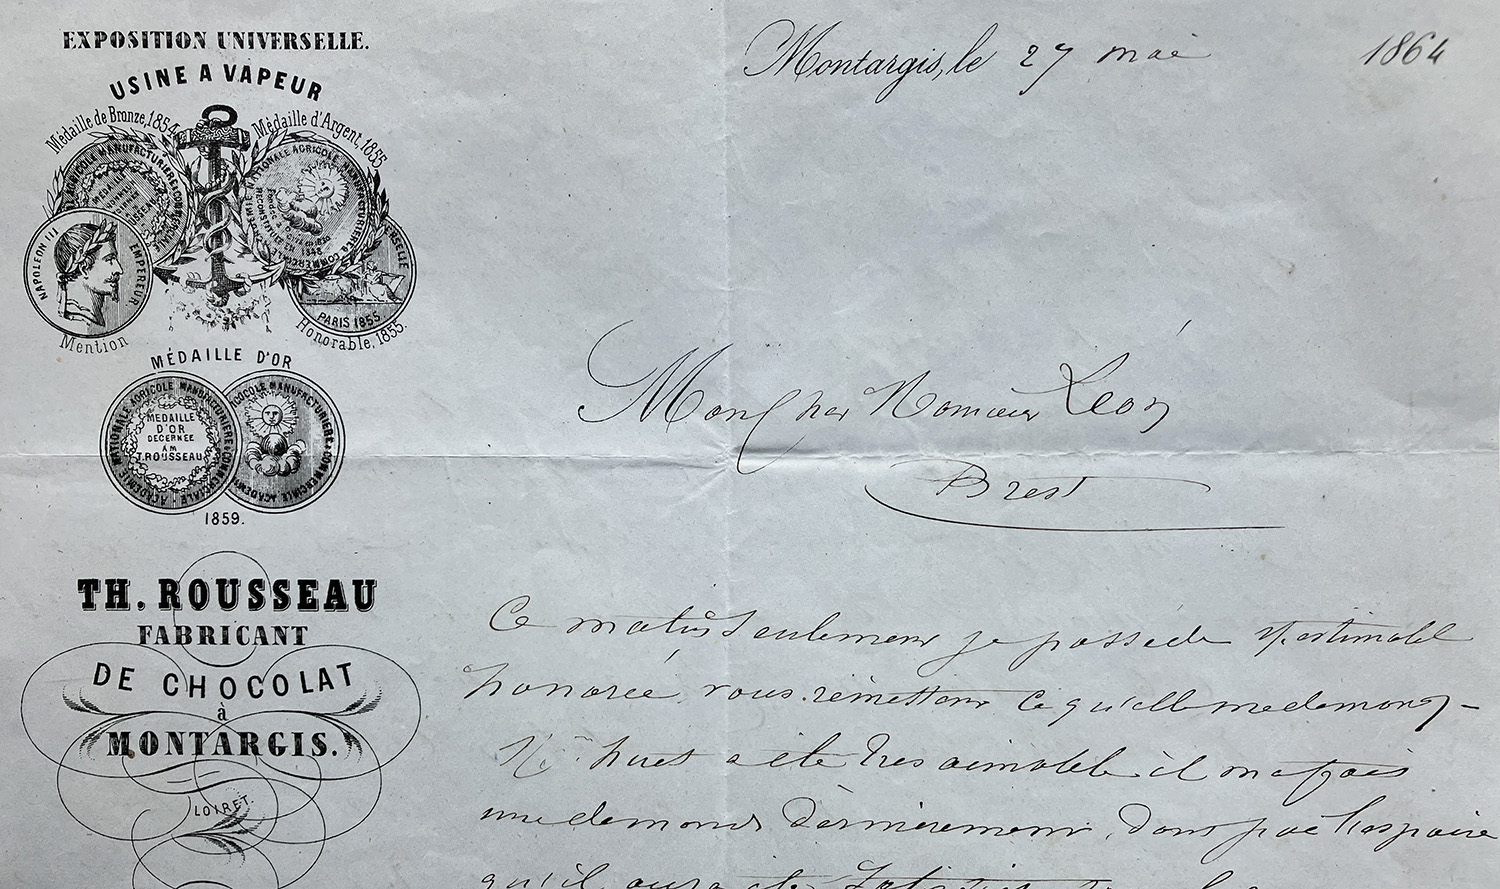 EXPOSITION UNIVERSELLE.
USINE A VAPEUR
Médaille de Bronze, 1854
Médaille d'Argent, 1855
NAPOLEON III EMPEREUR
PARIS 1855
Mention Honorable, 1855.
MÉDAILLE D'OR
ACADÉMIE NATIONALE AGRICOLE MANUFACTURIÈRE COMMERCIALE
MEDAILLE
D'OR
DECERNEE
A M
T. ROUSSEAU
1859.
TH. ROUSSEAU
FABRICANT
DE CHOCOLAT
à
MONTARGIS.
LOIRET.
Montargis, le 27 mai 1864
Mon cher Monsieur Léon
Brest
Ce matin seulement je possède
honorée, vous remettons ce qu'elle me demon-
huet a été très aimable il m a fais
une demond dernierement, dont j'ai l'espoire
qu'il aura été